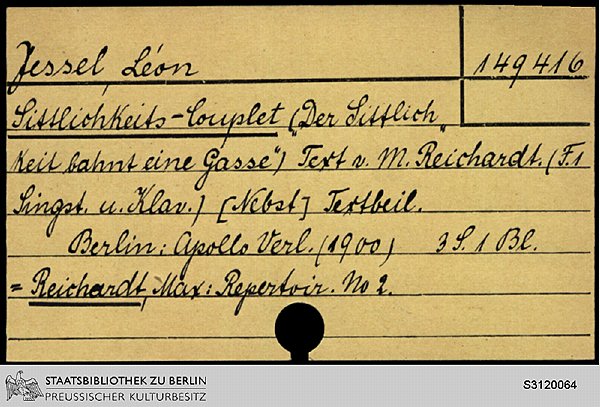 Jessel, Léon 149416
Sittlichkeits-Couplet („Der Sittlich
keit bahnt eine Gasse“) Text v. M. Reichardt. (F. 1
Singst. u. Klav.) [Nebst] Textbeil.
Berlin: Apollo Verl. (1900) 3 S. 1 Bl.
= Reichardt, Max: Repertoir. No 2.
STAATSBIBLIOTHEK ZU BERLIN
PREUSSISCHER KULTURBESITZ
S3120064